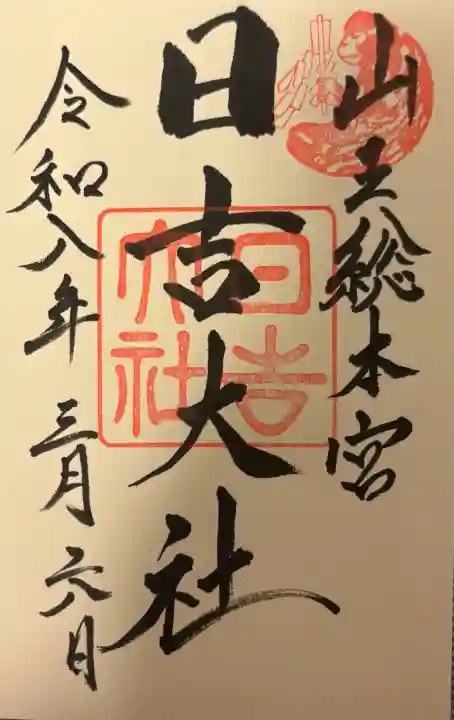 山王総本宮
日吉大社
令和八年 三月 六日
日吉
大社